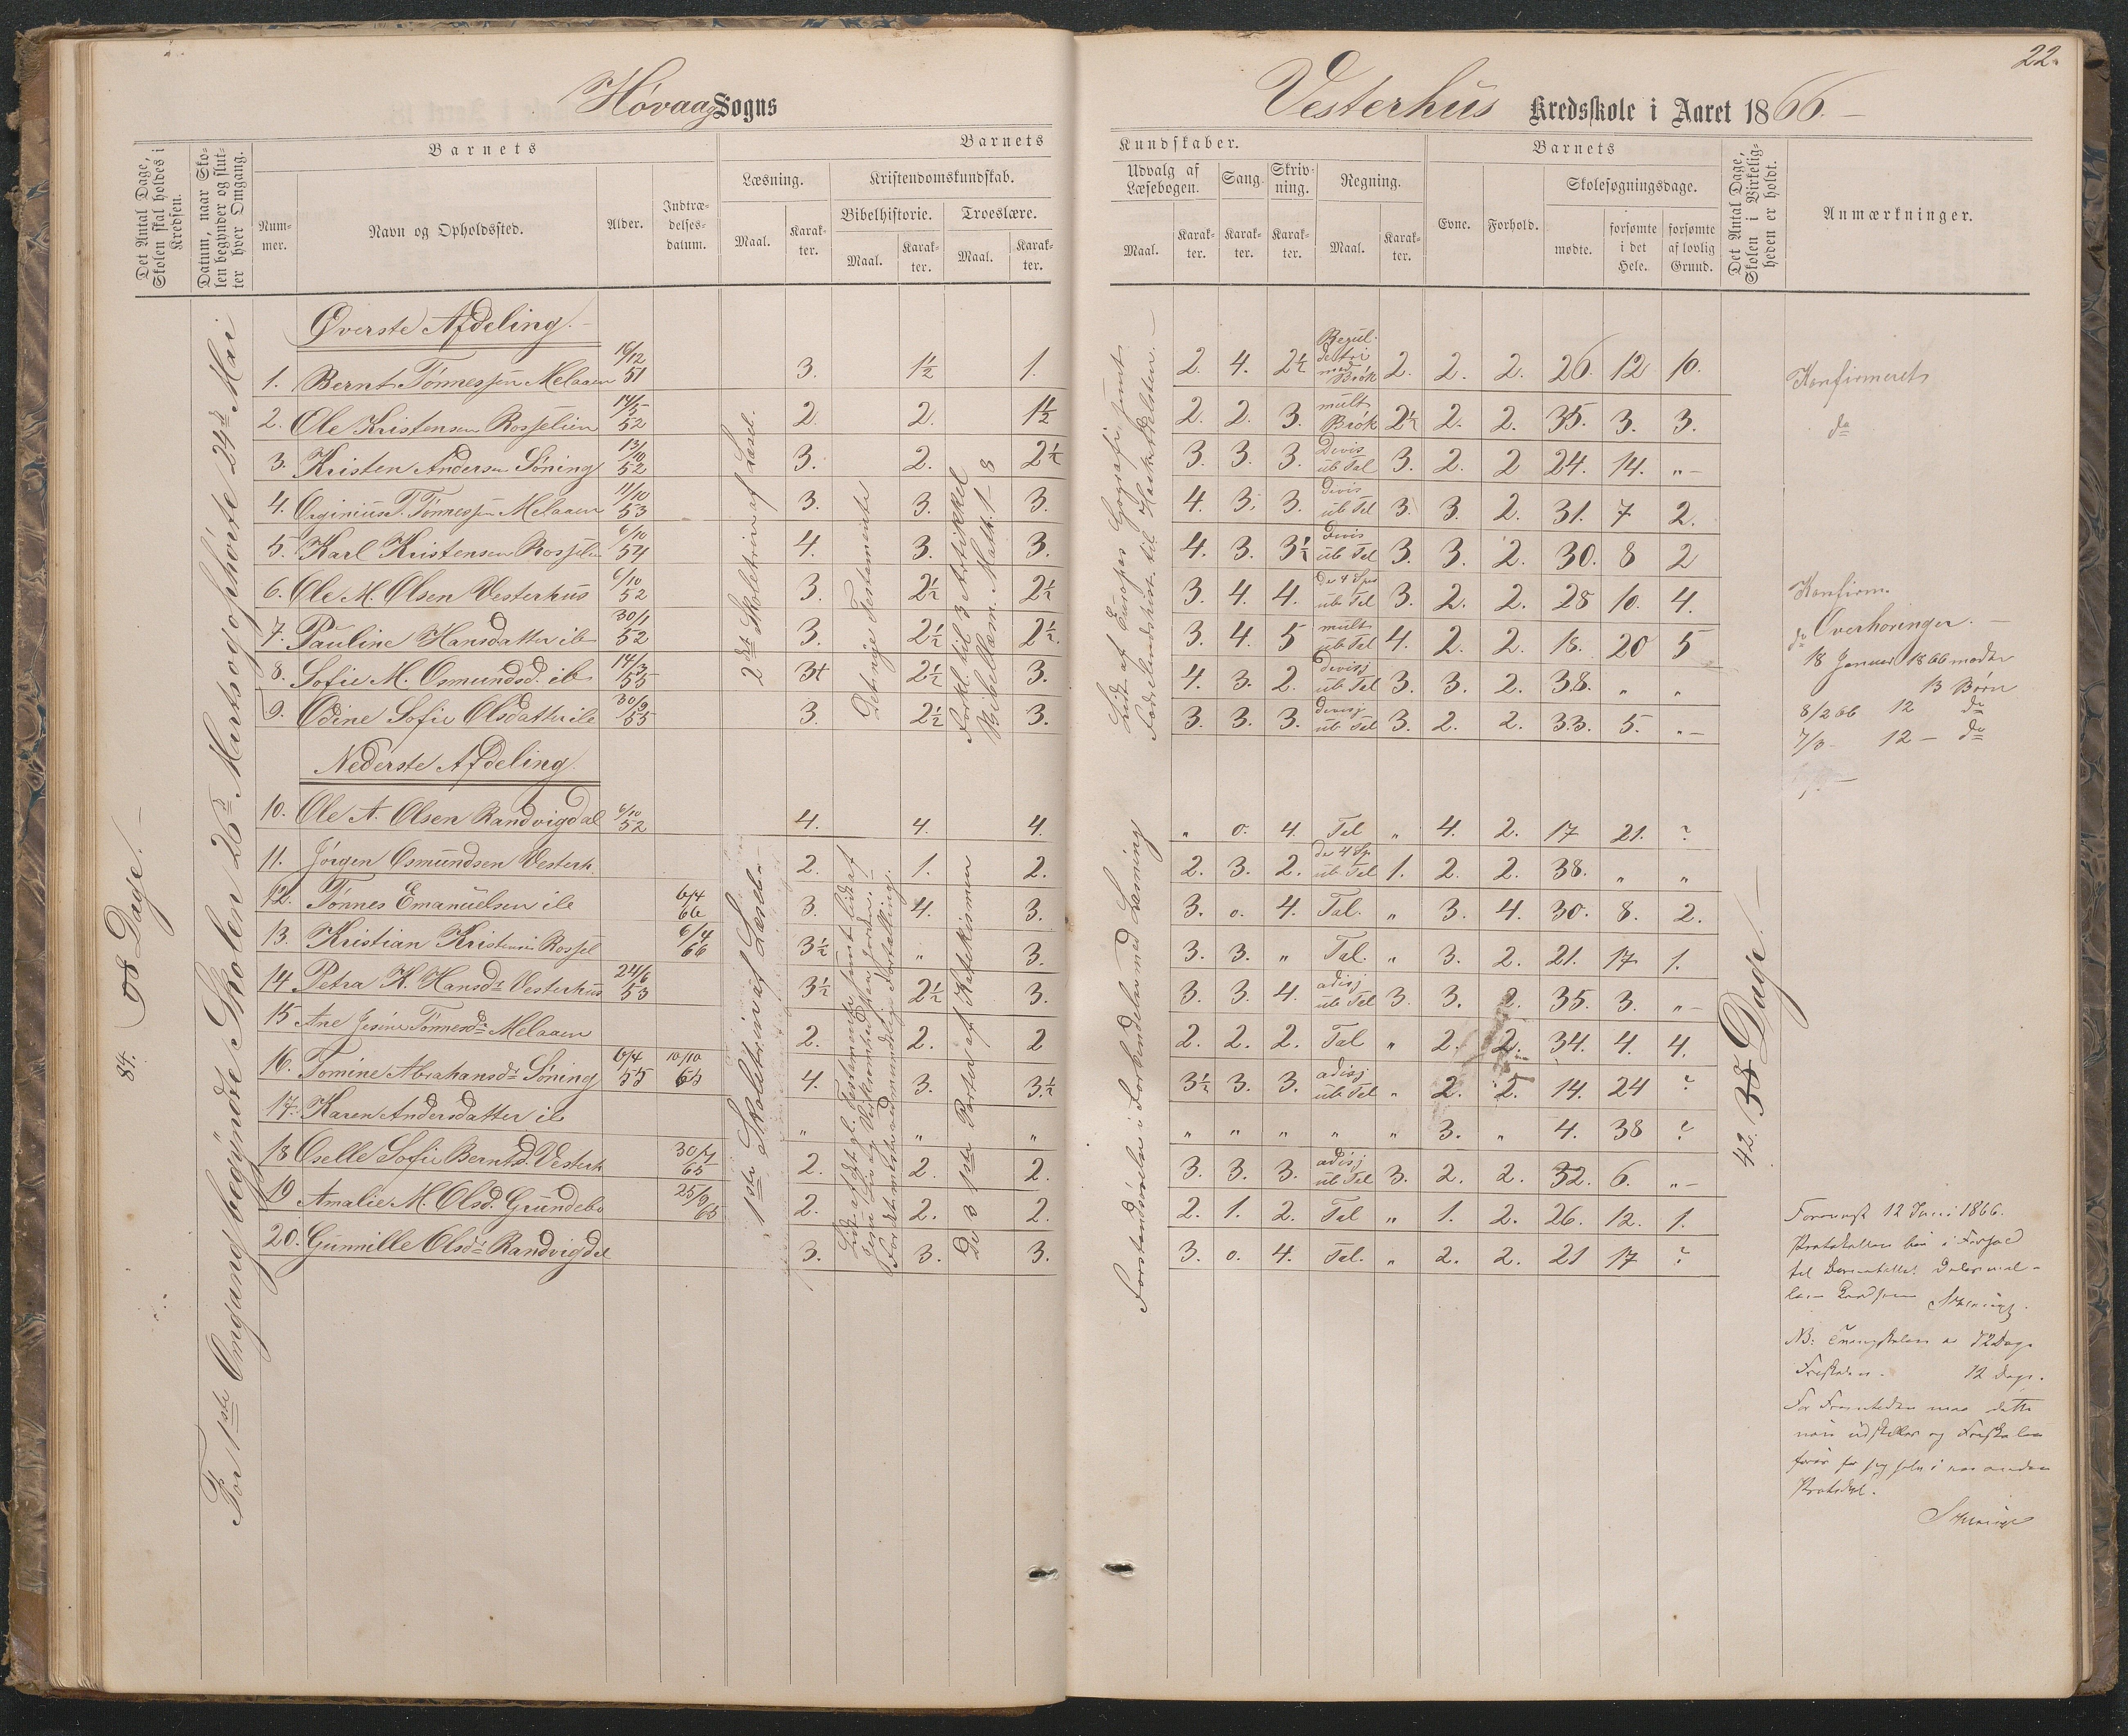 22.
Høvaags Sogns
Vesterhus Kredsskole i Aaret 1866.
Det Antal Dage, Skolen skal holdes i Kredsen.
Datum, naar Skolen begynder og slutter hver Omgang.
Barnets
Nummer.
Navn og Opholdssted.
Alder.
Indtrædelsesdatum.
Barnets
Læsning.
Maal.
Karakter.
Kristendomskundskab.
Bibelhistorie.
Maal.
Karakter.
Troeslære.
Maal.
Karakter.
Kundskaber.
Udvalg af Læsebogen.
Maal.
Karakter.
Sang.
Karakter.
Skrivning.
Karakter.
Regning.
Maal.
Karakter.
Barnets
Evne.
Forhold.
Skolesøgningsdage.
mødte.
forsømte i det Hele.
forsømte af lovlig Grund.
Det Antal Dage, Skolen i Virkeligheden er holdt.
Anmærkninger.
84. Dage.
For 1ste Omgang begyndte Skolen 26de Marts og ophørte 24de Mai
Øverste Afdeling.
2det Skoletrin af Læseb.
Det nye Testamente
Forkl. til 3 Artikkel
Bibellæm. Math. 1-8
Lidt af Europas Geografi samt
Fædrelandshist. til
1. Bernt Tønnessen Melaaen 16/12 51 3. 1½ 1. 2. 4. 2½ Regul. detri med Brøk 2. 2. 2. 26. 12 10. Konfirmeret
2. Ole Kristensen Rosselien 14/5 52 2. 2. 1½ 2. 2. 3. mult Brøk 2½ 2. 2. 35. 3. 3. do
3. Kristen Andersen Søning 13/10 52 3. 2. 2½ 3. 3. 3. Divis ub Tal 3. 2. 2 24. 14. "
4. T. Tønnessen Melaaen 11/10 53 3. 3. 3. 4. 3. 3. divis ub Tal 3. 3. 2. 31. 7 2.
5. Karl Kristensen Rosselien 6/10 54 4. 3. 3. 4. 3. 3½ Divis ub Tal 3. 3. 2. 30. 8 2
6. Ole M. Olsen Vesterhus 6/10 52 3. 2½ 2½ 3. 4. 4. de 4 Spes ub Tal 3. 2. 2. 28 10. 4. Konfirm.
7. Pauline Hansdatter ib 30/1 52 3. 2½ 2½ 3. 4. 5 mult ub Tal 4. 2. 2. 18. 20 5 do
8. Sofie M. Osmundsd. ib 14/3 55 3+ 2½ 3. 4. 3. 2. divisj ub Tal 3. 3. 2. 38. " "
9. Odine Sofie Olsdatter ib 30/9 55 3. 2½ 3. 3. 3. 3. divisj ub Tal 3. 2. 2. 33. 5. "
Overhøringer.
18 Januar 1866 mødte
13 Børn
8/2 66 12 do
7/3 12 - do
Nederste Afdeling.
1ste Skoletrin af Læseb.
De 3 1ste Parter af Katekismen
Forstandsøvelse i Forbindelse med Læsning
42. 38 Dage.
10. Ole A. Olsen Randvigdal 6/10 52 4. 4. 4. " 0. 4. Tal " 4. 2. 17 21. ?
11. Jørgen Osmundsen Vesterh. 2. 1. 2. 2. 3. 2. de 4 Sp. ub Tal 1. 2. 2. 38. " "
12. Tønnes Emanuelsen ib 6/4 66 3. 4. 3. 3. 0. 4. Tal. " 3. 4. 30. 8. 2.
13. Kristian Kristensen Rossel 6/4 66 3½ " 3. 3. 3. " Tal. " 3. 2. 21. 17 1.
14 Petra K. Hansdr Vesterhus 24/6 53 3½ 2½ 3. 3. 3. 4. adisj ub Tal 3. 3. 2. 35. 3. "
15 Ane Tønnesdr Melaaen 2. 2. 2 2. 2. 2. Tal " 2. 2. 34. 4. 4.
16. Tomine Abrahansdr Søning 6/4 55 10/10 65 4. 3. 3½ 3½ 3. 3. adisj ub Tal " 2. 2. 14. 24 ?
17. Karen Andersdatter ib " " " " " " " " 3. " 4. 38 ?
18 Oselle Sofie Berntsd. Vesterh 30/7 65 2. 2. 2. 3. 3. 3. adisj ub Tal 3. 2. 2. 32. 6. "
19 Amalie M. Olsd. Grundebo 25/9 65 2. 2. 2. 2. 1. 2. Tal " 1. 2. 26. 12. 1.
20. Gunnille Olsdr Randvigdal 3. 3. 3. 3. 0. 4. Tal. " 2. 2. 21 17 ?
12 Juni 1866.
NB: 72 Dage
Friskolen. 12 Dage.
og Friskolen
Protokol.